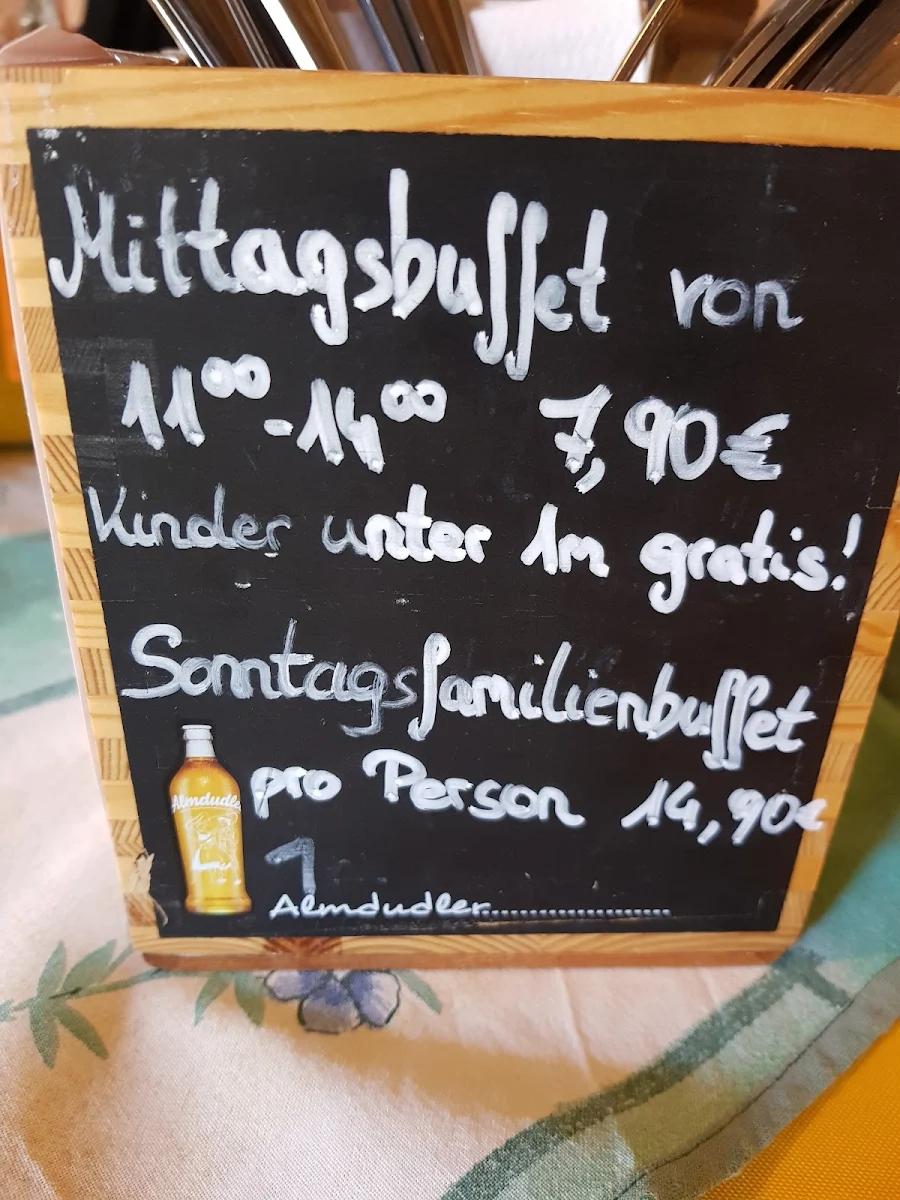 Mittagsbuffet von
11⁰⁰-14⁰⁰ 7,90€
Kinder unter 1m gratis!
Sonntagsfamilienbuffet
pro Person 14,90€
Almdudler
1
Almdudler....................